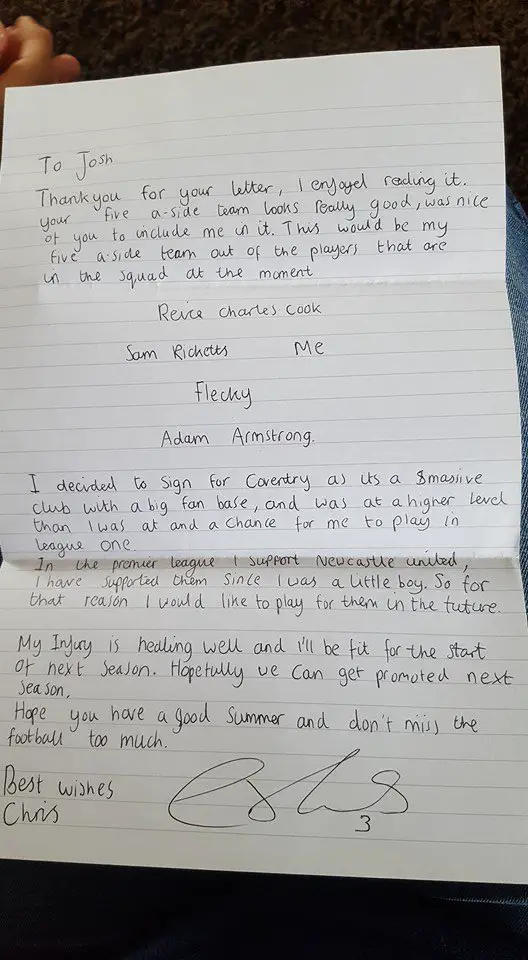 To Josh
Thankyou for your letter, I enjoyed reading it.
your five a-side team looks really good, was nice
of you to include me in it. This would be my
five a-side team out of the players that are
in the squad at the moment
Reice Charles Cook
Sam Ricketts Me
Flecky
Adam Armstrong.
I decided to Sign for Coventry as its a massive
club with a big fan base, and was at a higher level
than I was at and a chance for me to play in
league one.
In the premier league I support Newcastle united,
I have supported them since I was a little boy. So for
that reason I would like to play for them in the future.
My Injury is healing well and i'll be fit for the start
of next season. Hopefully we can get promoted next
season.
Hope you have a good summer and don't miss the
football too much.
Best wishes
Chris
3